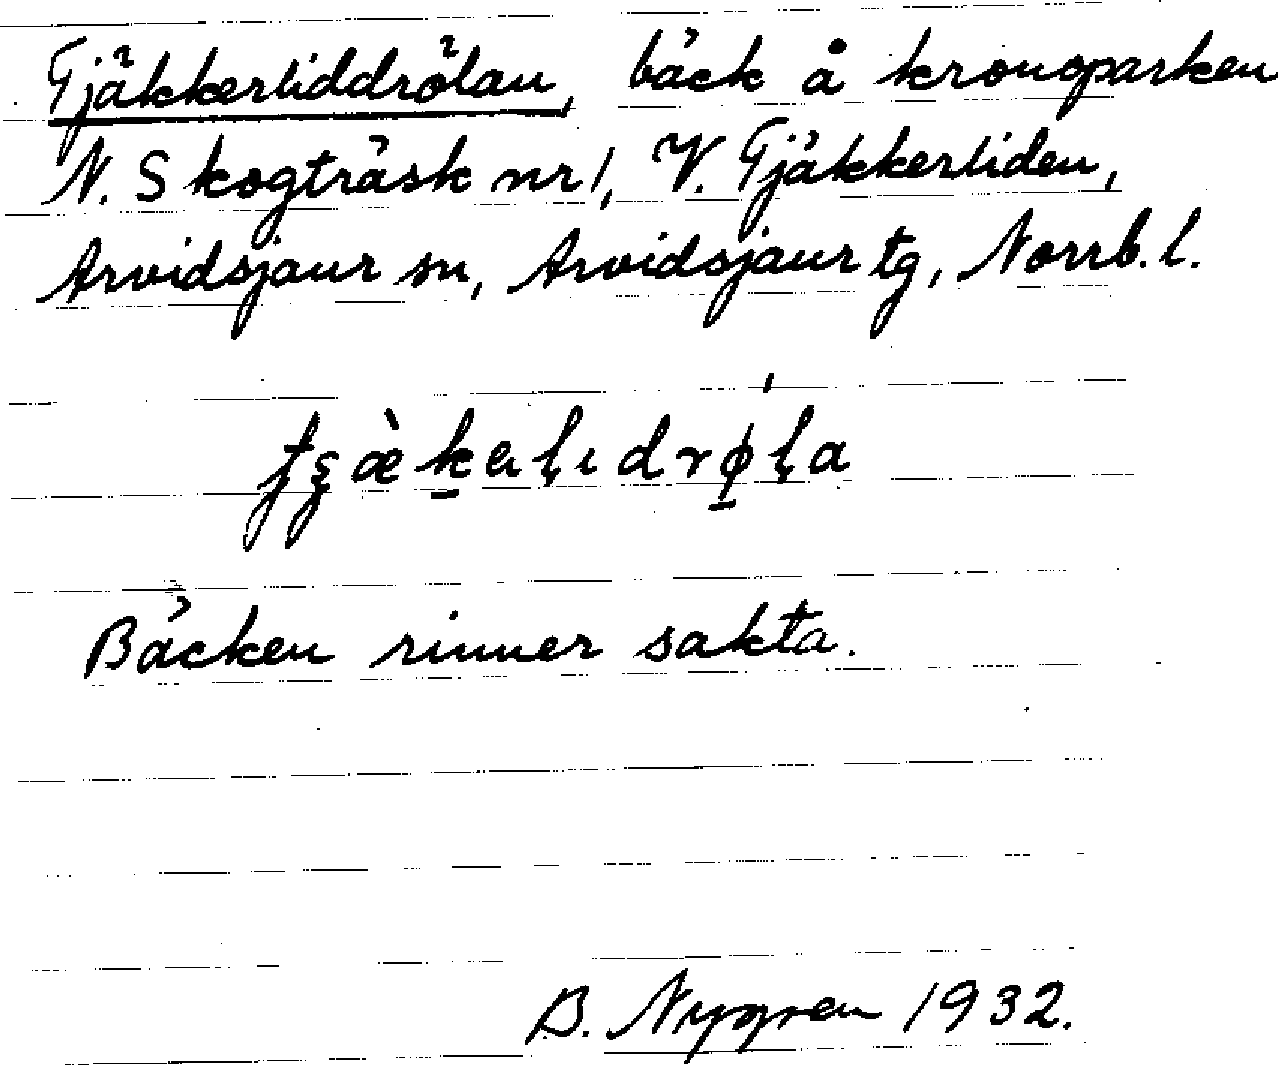 Tjäkkerliddrölan, bäck å kronoparken
N. Skogträsk nr 1, V. Tjäkkerliden,
Arvidsjaur sn, Arvidsjaur tg, Norrb. l.
Bäcken rinner sakta.
B. Nygren 1932.